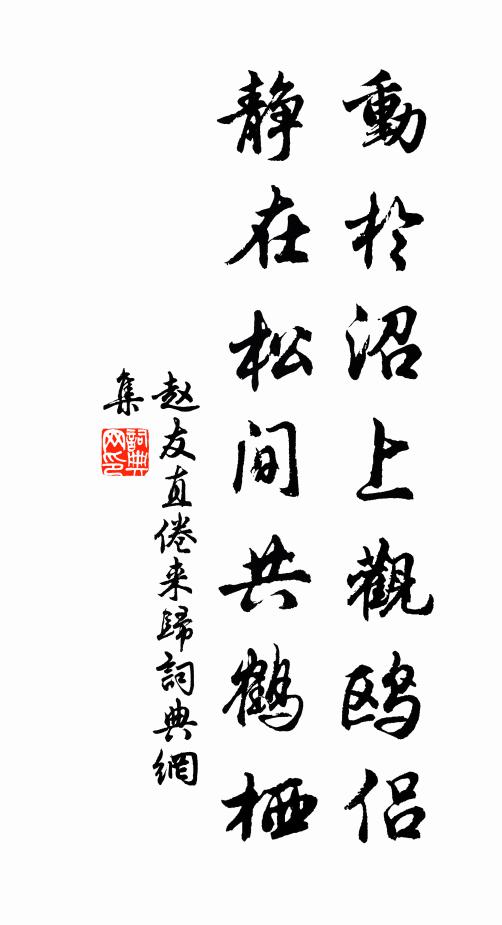 動於沼上觀鸥侣
静在松間共鹤栖
赵友直倦来歸詞典網
集
詞典
网印